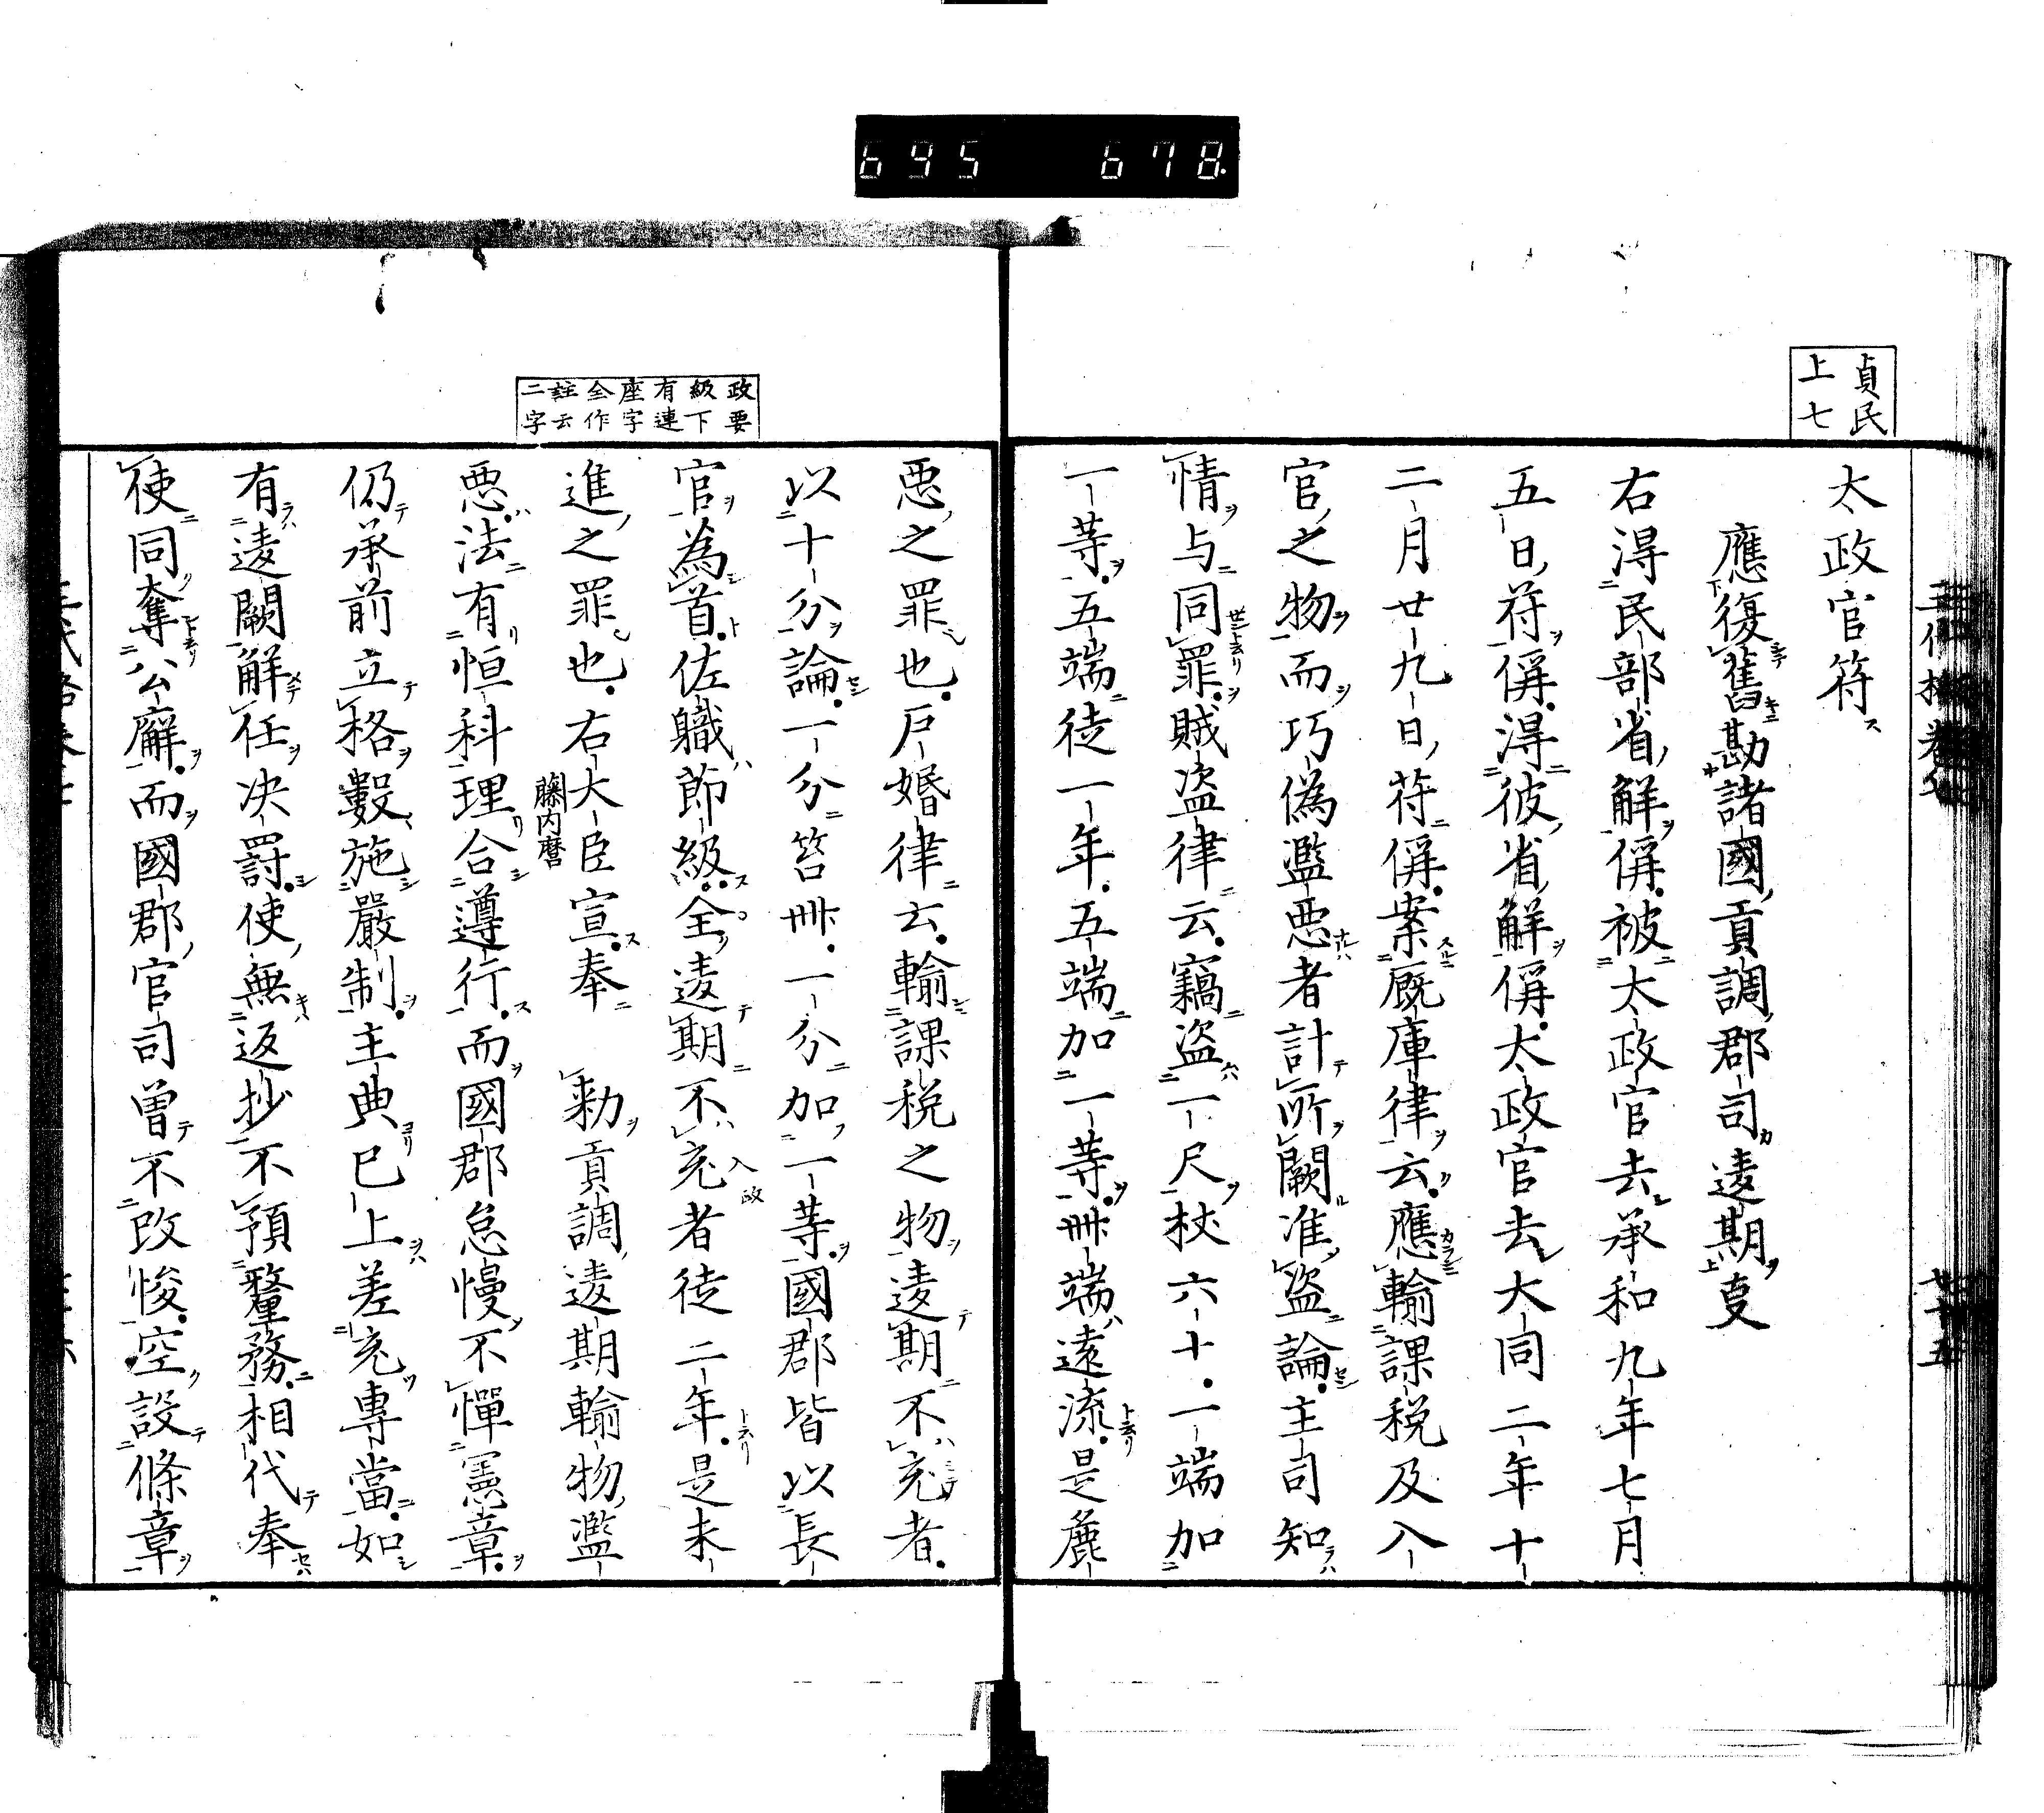 695 678
貞民
上七
太政官符
應復舊勘諸國貢調郡司違期㕝
右得民部省解偁被太政官去承和九年七月
五日符偁得彼省解偁太政官去大同二年十
二月廿九日符偁案厩庫律云應輸課税及入
官之物而巧偽濫悪者計所闕准盗論主司知
情与同罪賊盗律云竊盗一尺杖六十一端加
一等五端徒一年五端加一等卌端遠流是麁
政要
級下
有連
座字
全作
註云
二字
悪之罪也戸婚律云輸課税之物違期不充者
以十分論一分笞卌一分加一等國郡皆以長
官為首佐職節級全違期不充者徒二年是未
入政
進之罪也右大臣宣奉　勅貢調違期輸物濫
藤内麿
悪法有恒科理合遵行而國郡怠慢不憚憲章
仍承前立格數施嚴制主典已上差充專當如
有違闕解任决罰使無返抄不預釐務相代奉
使同奪公廨而國郡官司曽不改悛空設條章